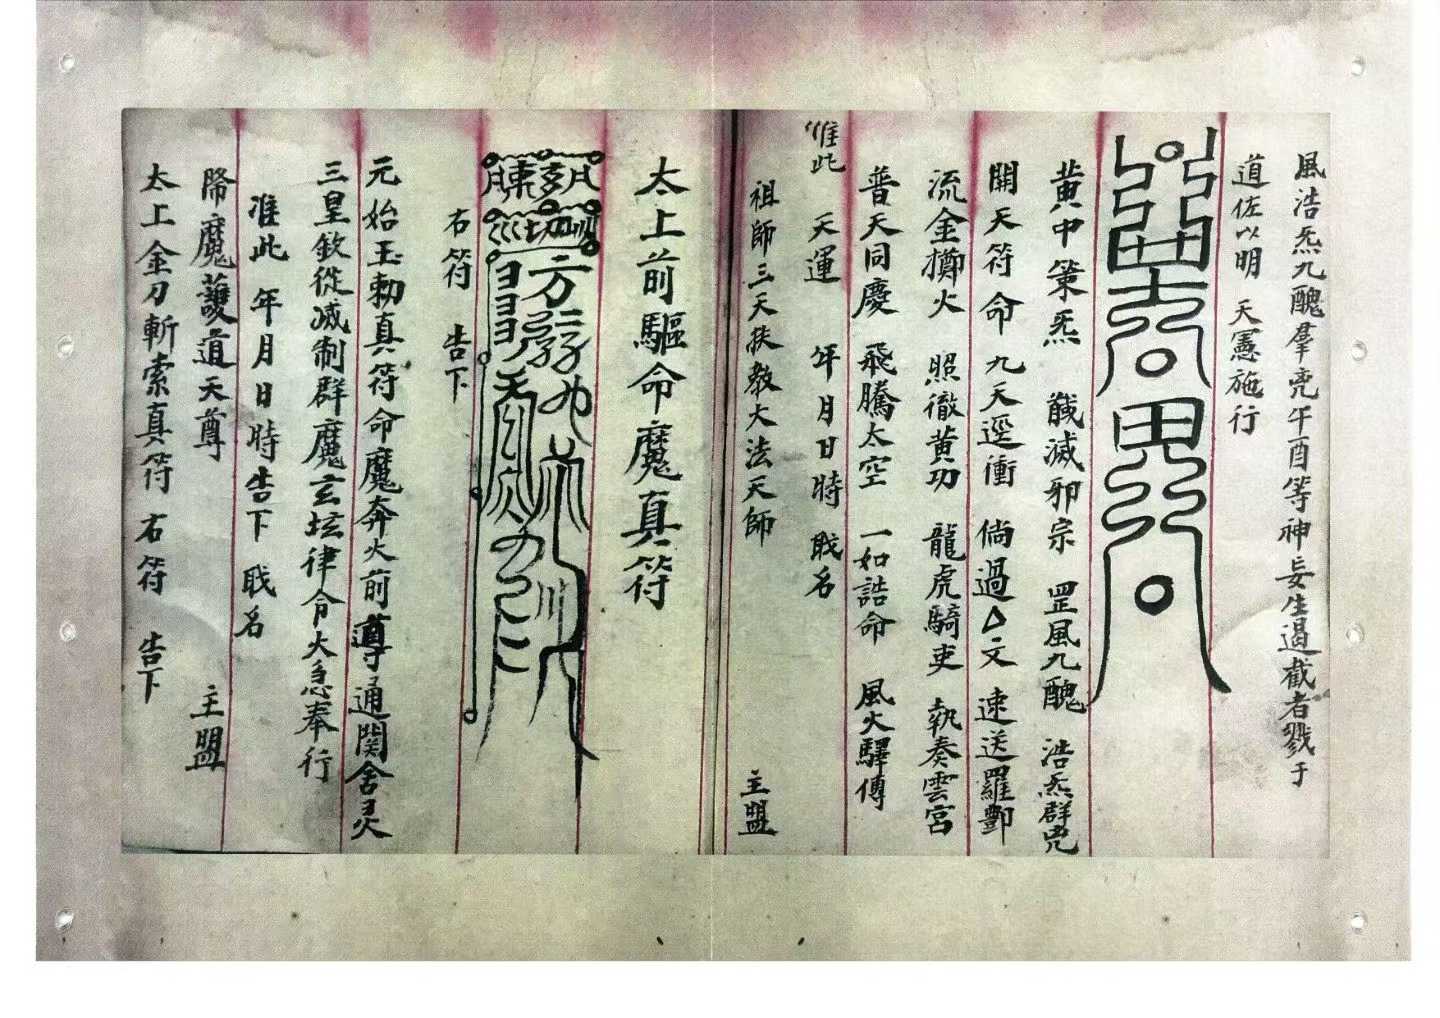 風浩炁九醜羣兇午酉等神妄生遏截者戮于
道佐以明 天憲施行
黄中策炁 馘滅邪宗 罡風九醜 浩炁群兇
開天符命 九天逕衝 倘過厶文 速送羅酆
流金擲火 照徹黄功 龍虎騎吏 執奏雲宮
普天同慶 飛騰太空 一如誥命 風火驛傳
准此 天運 年月日時 戝名
祖師三天扶教大法天師 主盟
太上前驅命魔真符
右符 告下
元始玉勅真符命魔奔火前導通関舍灵
三皇欽從滅制群魔玄坛律令火急奉行
准此 年月日時告下 戝名
降魔護道天尊 主盟
太上金刀斬索真符 右符 告下